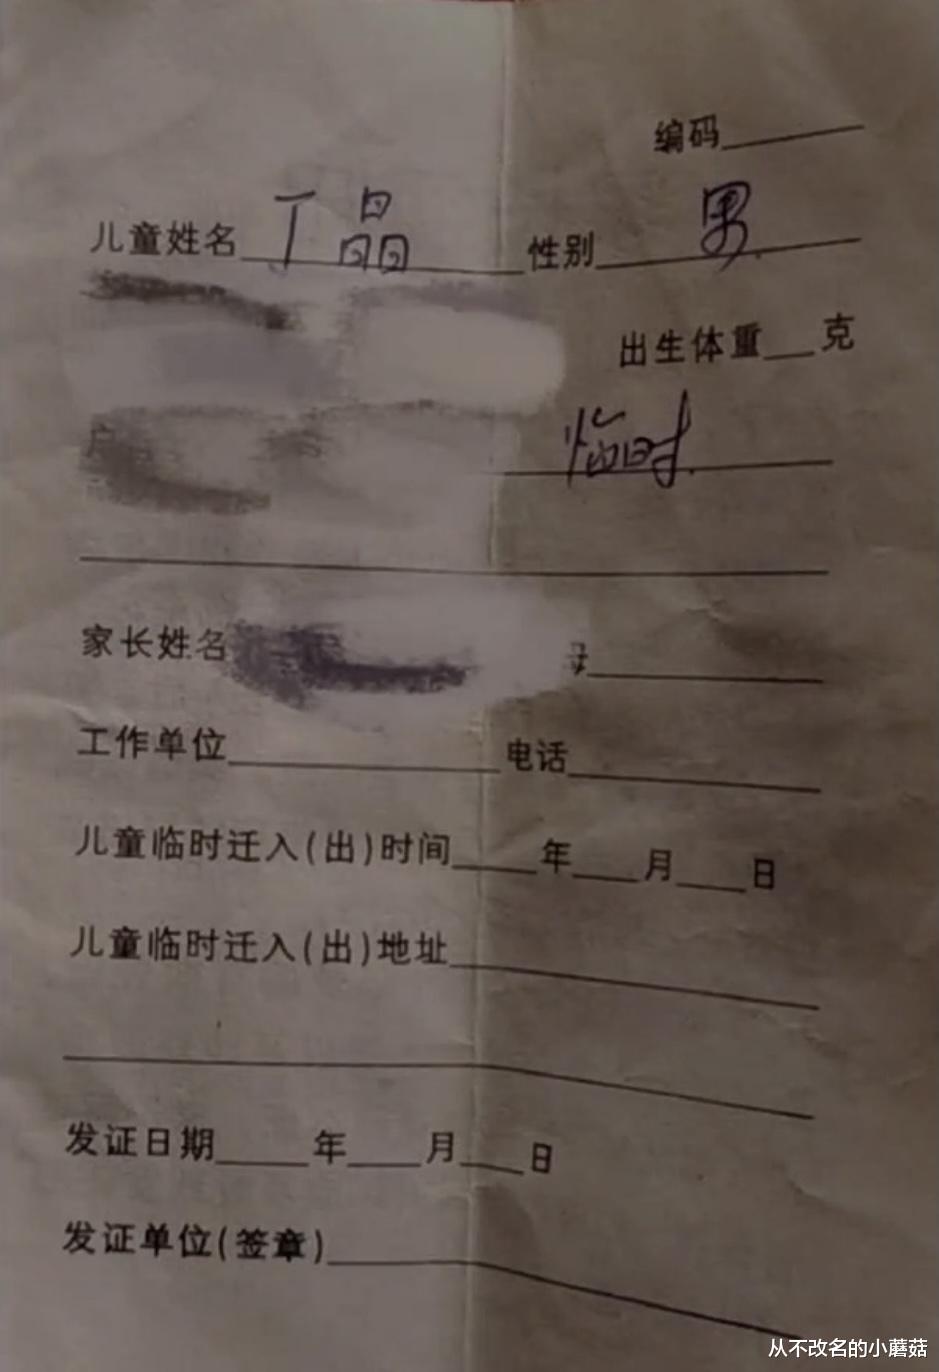 编码
儿童姓名 丁晶 性别 男
出生体重 克
临时
家长姓名 母
工作单位 电话
儿童临时迁入(出)时间 年 月 日
儿童临时迁入(出)地址
发证日期 年 月 日
发证单位(签章)
从不改名的小蘑菇